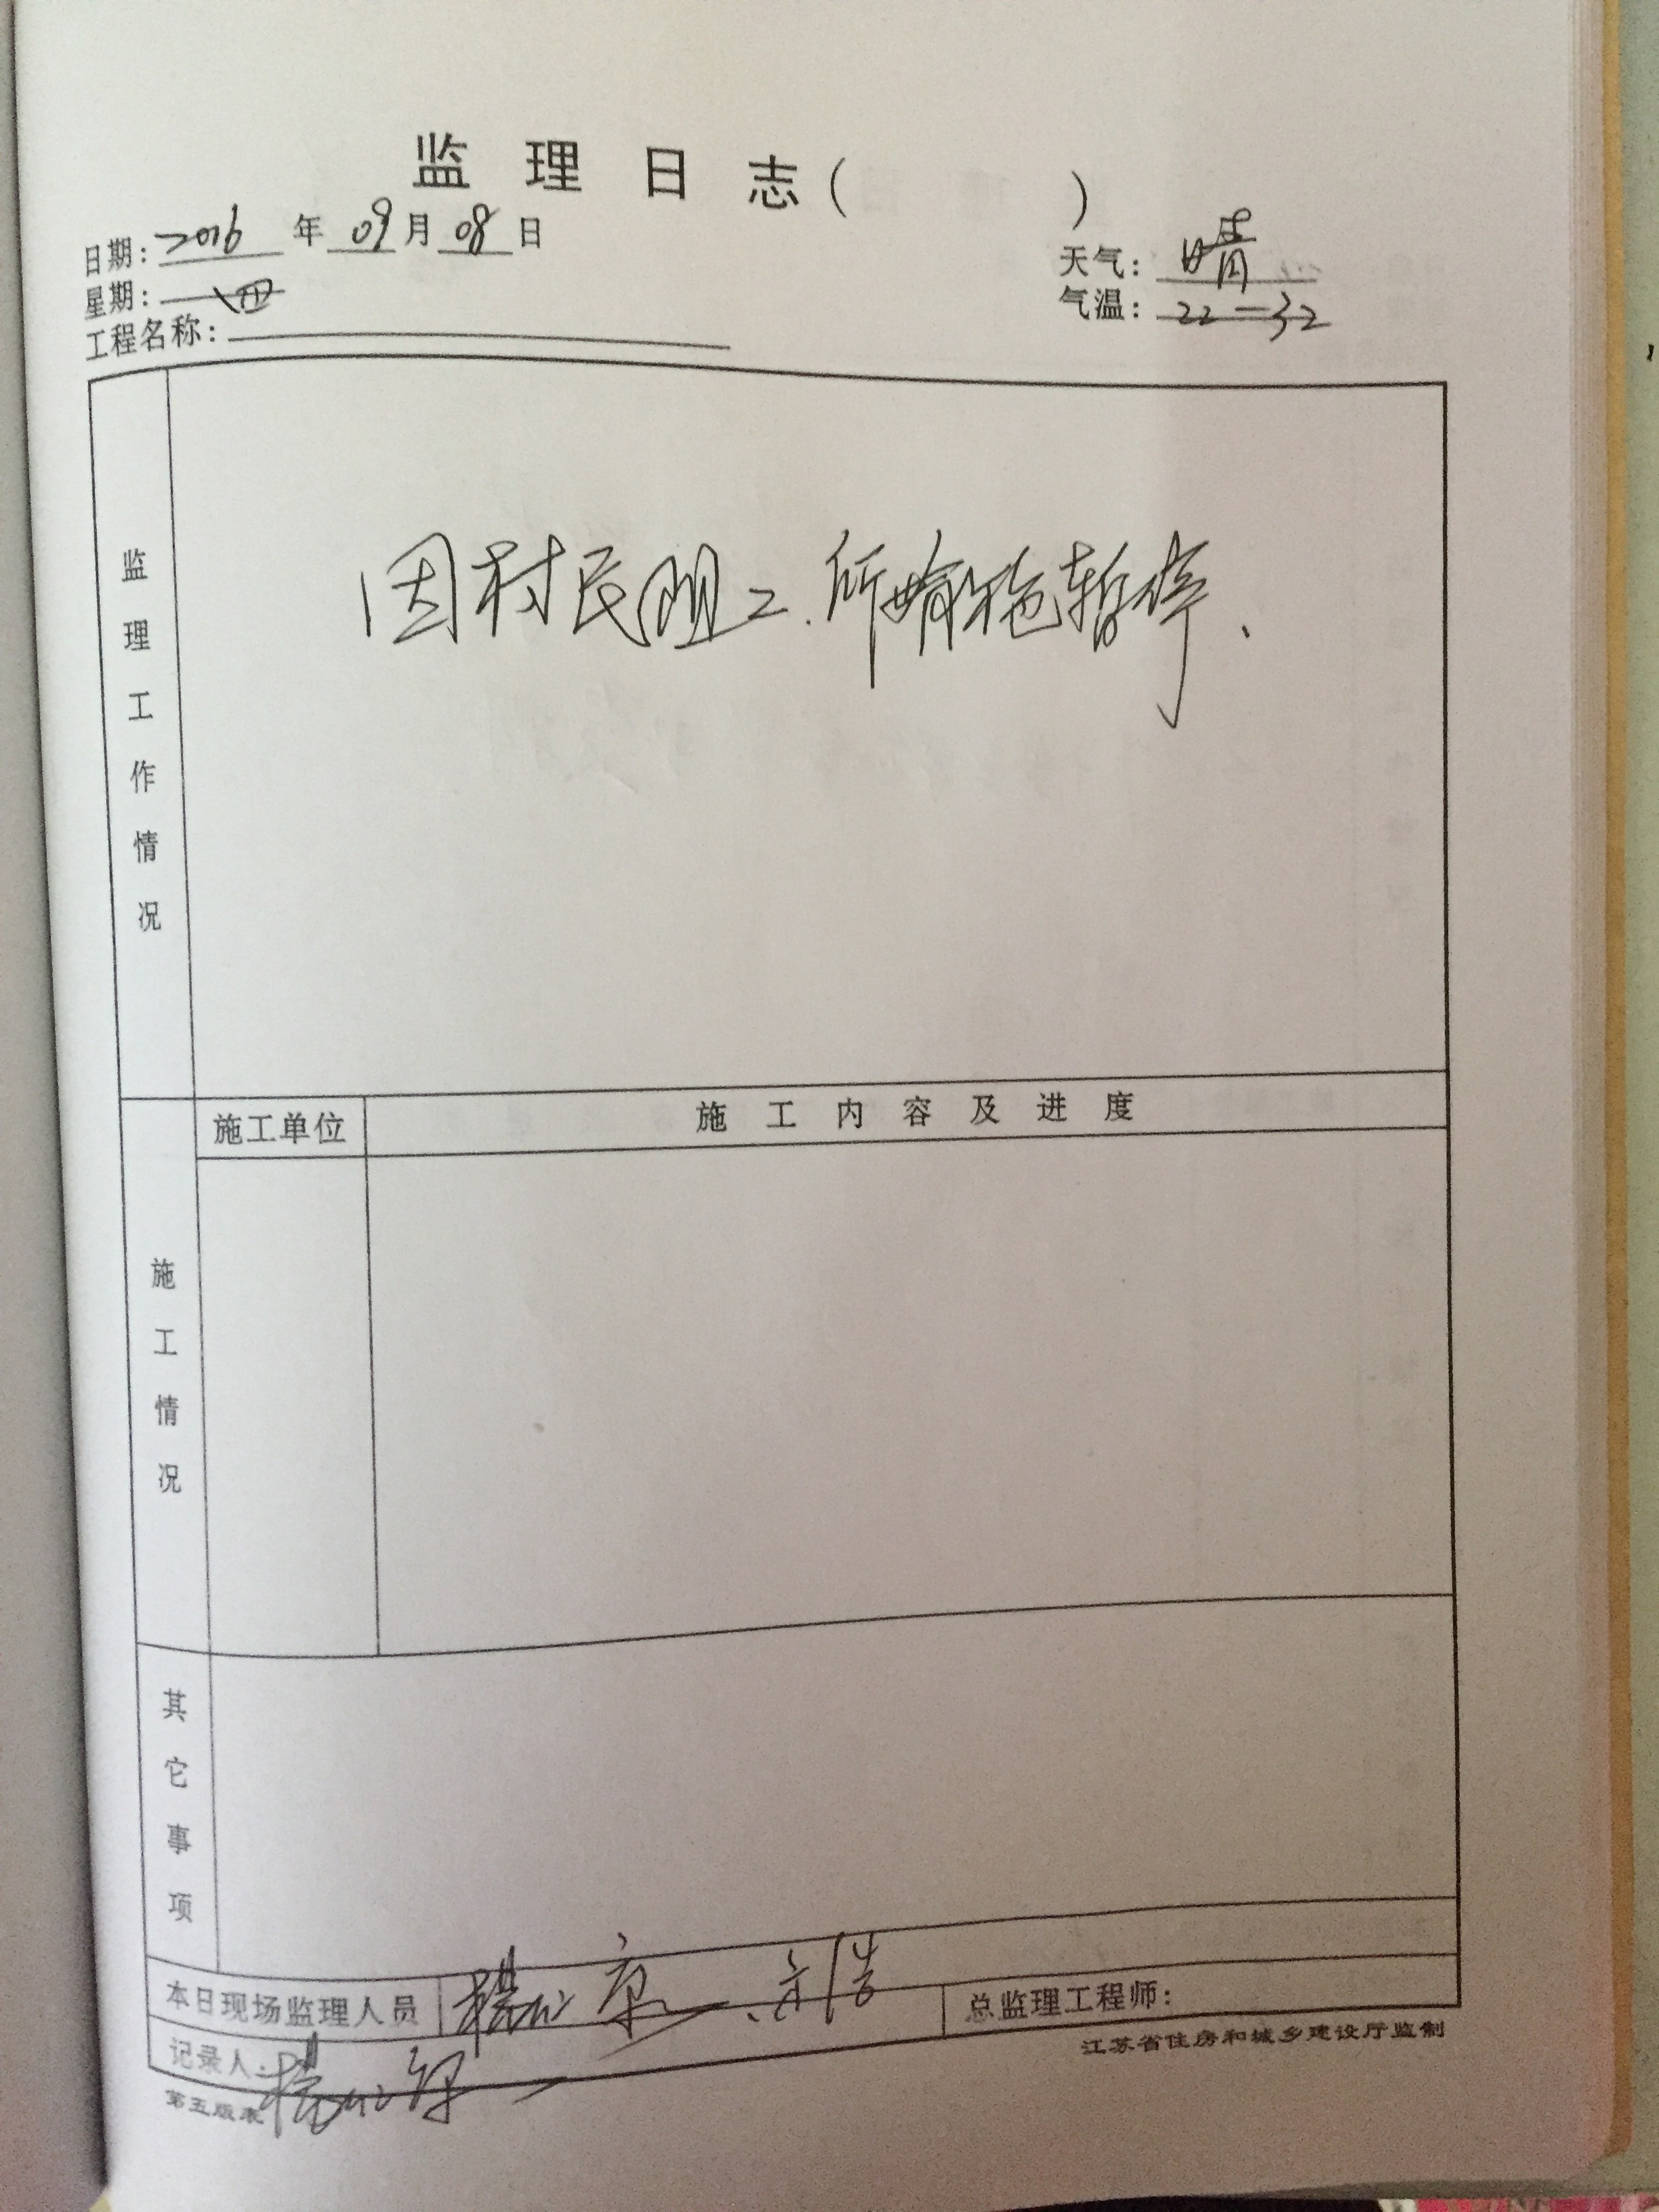 监理日志（ ）
日期：2016年09月08日
天气：晴
星期：四
气温：22-32
工程名称：
监理工作情况
因村民阻工.所有施暂停.
施工单位
施工内容及进度
施工情况
其它事项
本日现场监理人员
总监理工程师：
记录人：
江苏省住房和城乡建设厅监制
第五版表